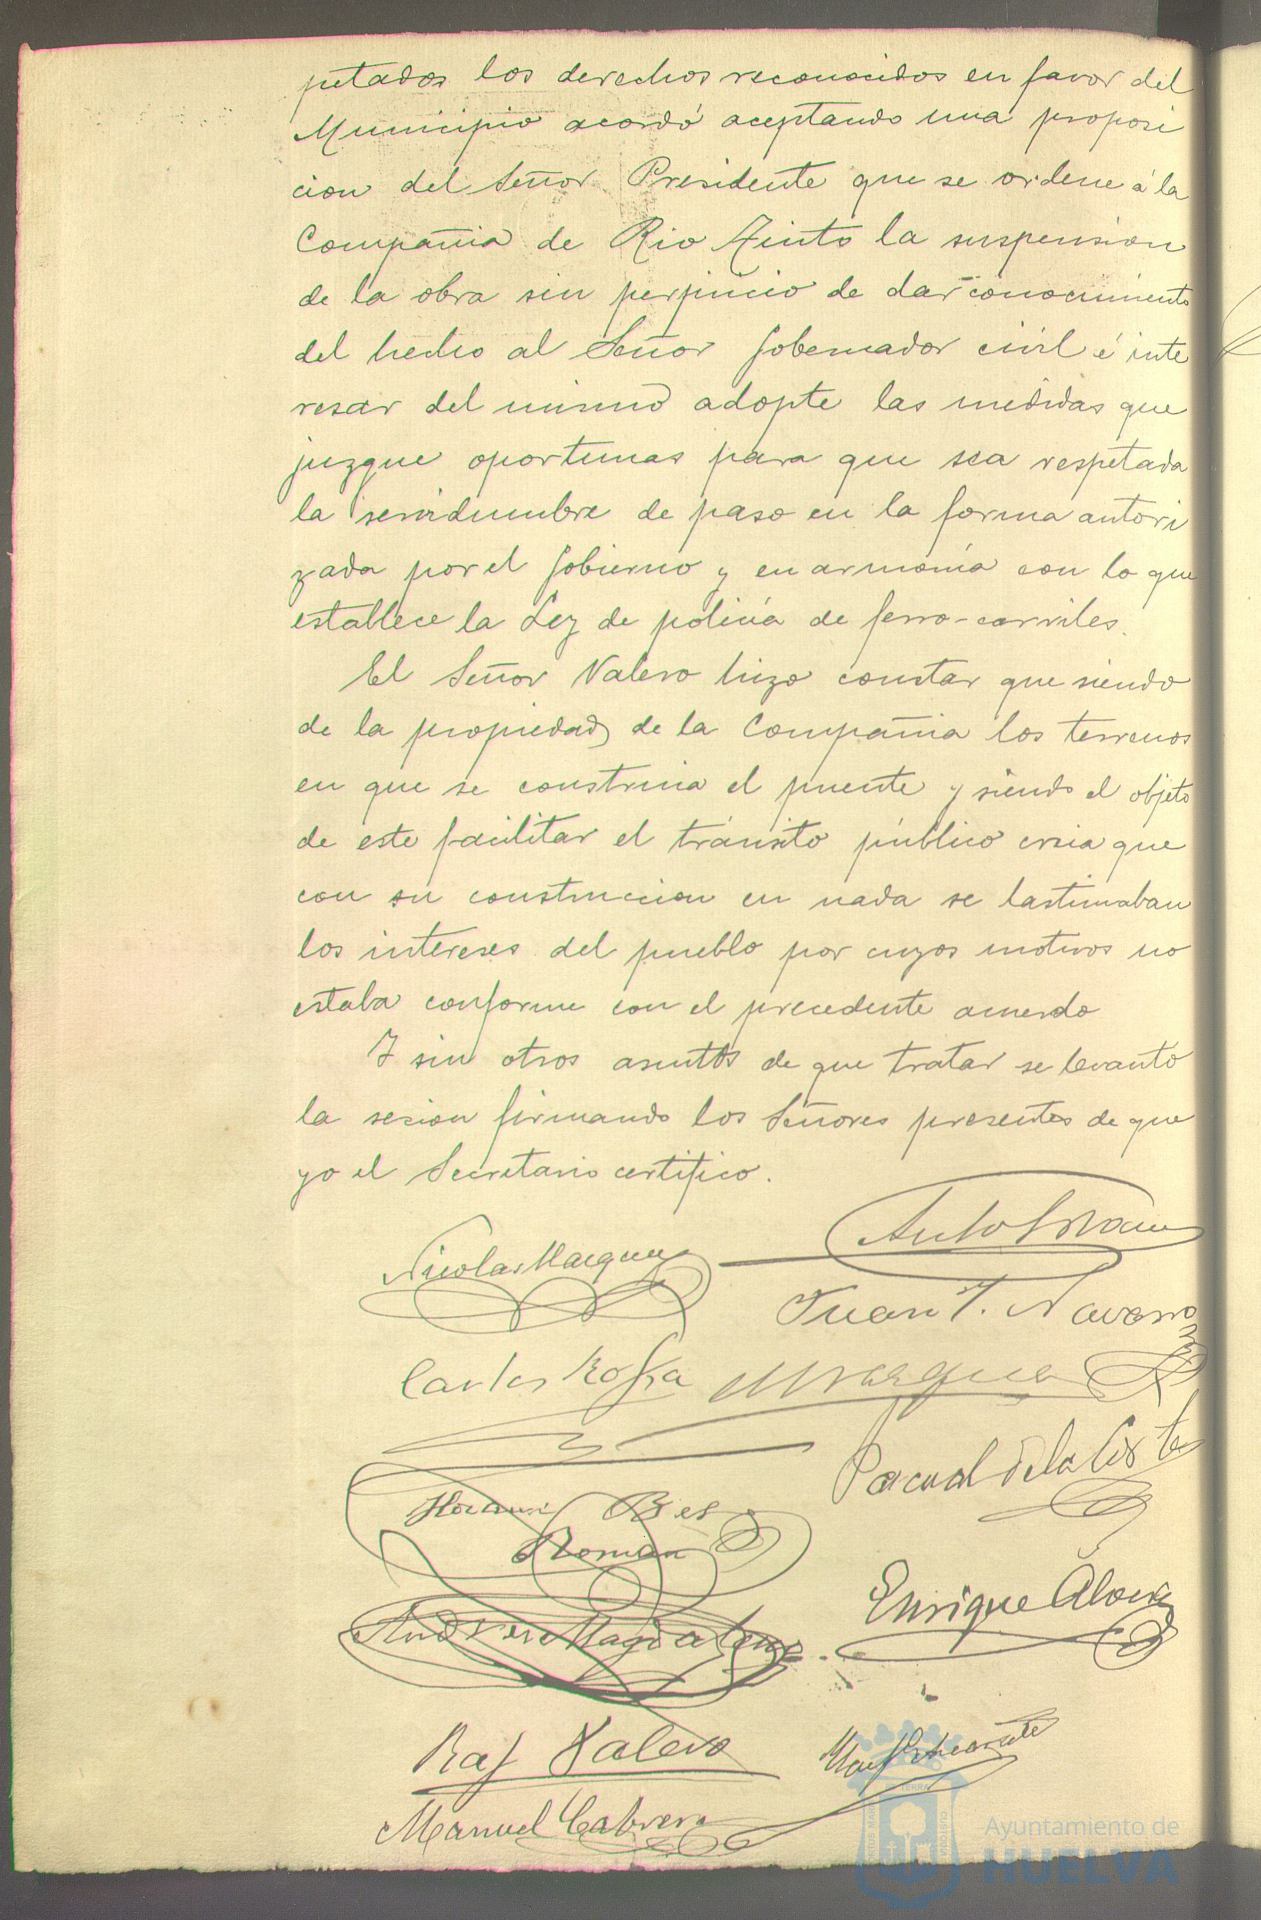 petados los derechos reconocidos en favor del
Municipio acordó aceptando una proposi
cion del Señor Presidente que se ordene á la
Compañia de Rio Tinto la suspension
de la obra sin perjuicio de dar conocimiento
del hecho al Señor Gobernador civil é inte
resar del mismo adopte las medidas que
juzgue oportunas para que sea respetada
la servidumbre de paso en la forma autori
zada por el Gobierno y en armonía con lo que
establece la Ley de policía de ferro-carriles.
El Señor Valero hizo constar que siendo
de la propiedad de la Compañia los terrenos
en que se construia el puente y siendo el objeto
de este facilitar el tránsito público creia que
con su construccion en nada se lastimaban
los intereses del pueblo por cuyos motivos no
estaba conforme con el precedente acuerdo
Y sin otros asuntos de que tratar se levantó
la sesion firmando los Señores presentes de que
yo el Secretario certifico.
Nicolas Marquez
Juan J. Navarro
Carlos Rofa
Pascual de la Corte
Roman
Enrique
Andres Magdalena
Raf Valero
Manuel Cabrera
Ayuntamiento de
HUELVA